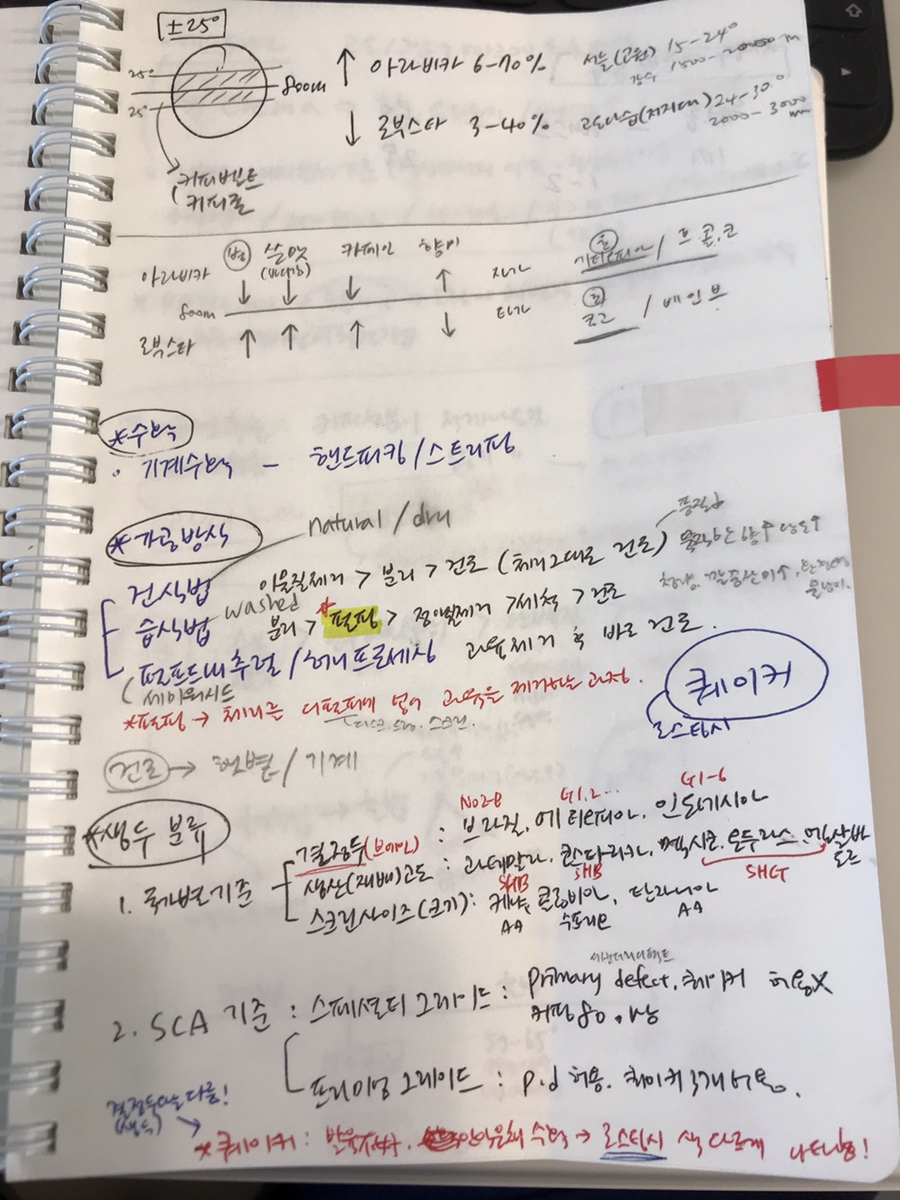 ±25°
25° 800m ↑ 아라비카 6-70% 서늘(고원) 15-24°
강수 1500-2000 m
25° ↓ 로부스타 3-40% 고온다습(저지대) 24-30°
2000-3000 mm
커피벨트
커피존
병 쓴맛 카페인 향미
(바디감)
아라비카 ↓ ↓ ↓ ↑ 자가 원 에티오피아 / 크
800m
로부스타 ↑ ↑ ↑ ↓ 타가 원 콩고 /
*수확
• 기계수확 - 핸드피킹/스트리핑
natural / dry
*가공방식
건식법 이물질제거 > 분리 > 건조 (체리그대로 건조)
washed
습식법 분리 > *펄핑 > 점액질제거 > 세척 > 건조
펄프드내추럴/허니프로세싱 과육제거 후 바로 건조.
세미워시드
*펄핑 → 체리를 디펄퍼에 넣어 과육을 제거하는 과정.
디스크. 드럼. 스크린.
퀘이커
로스팅시
건조 → 햇볕/기계
*생두 분류
No2-8 G1.2... G1-6
결점두(브에인) : 브라질, 에티오피아, 인도네시아
1. 국가별기준 생산(재배)고도 : 과테말라, 코스타리카, 멕시코. 온두라스. 엘살바도르
SHB SHB SHG
스크린사이즈(크기) : 케냐, 콜롬비아, 탄자니아
AA 수프레모 AA
2. SCA 기준 : 스페셜티 그레이드 : primary defect. 퀘이커 허용X
커핑 80. 이상
프리미엄 그레이드 : p.d 허용. 퀘이커 3개 허용.
결점두와는 다름!
(생두)
*퀘이커 : 안익은채 수확 → 로스팅시 색 다르게 나타남!